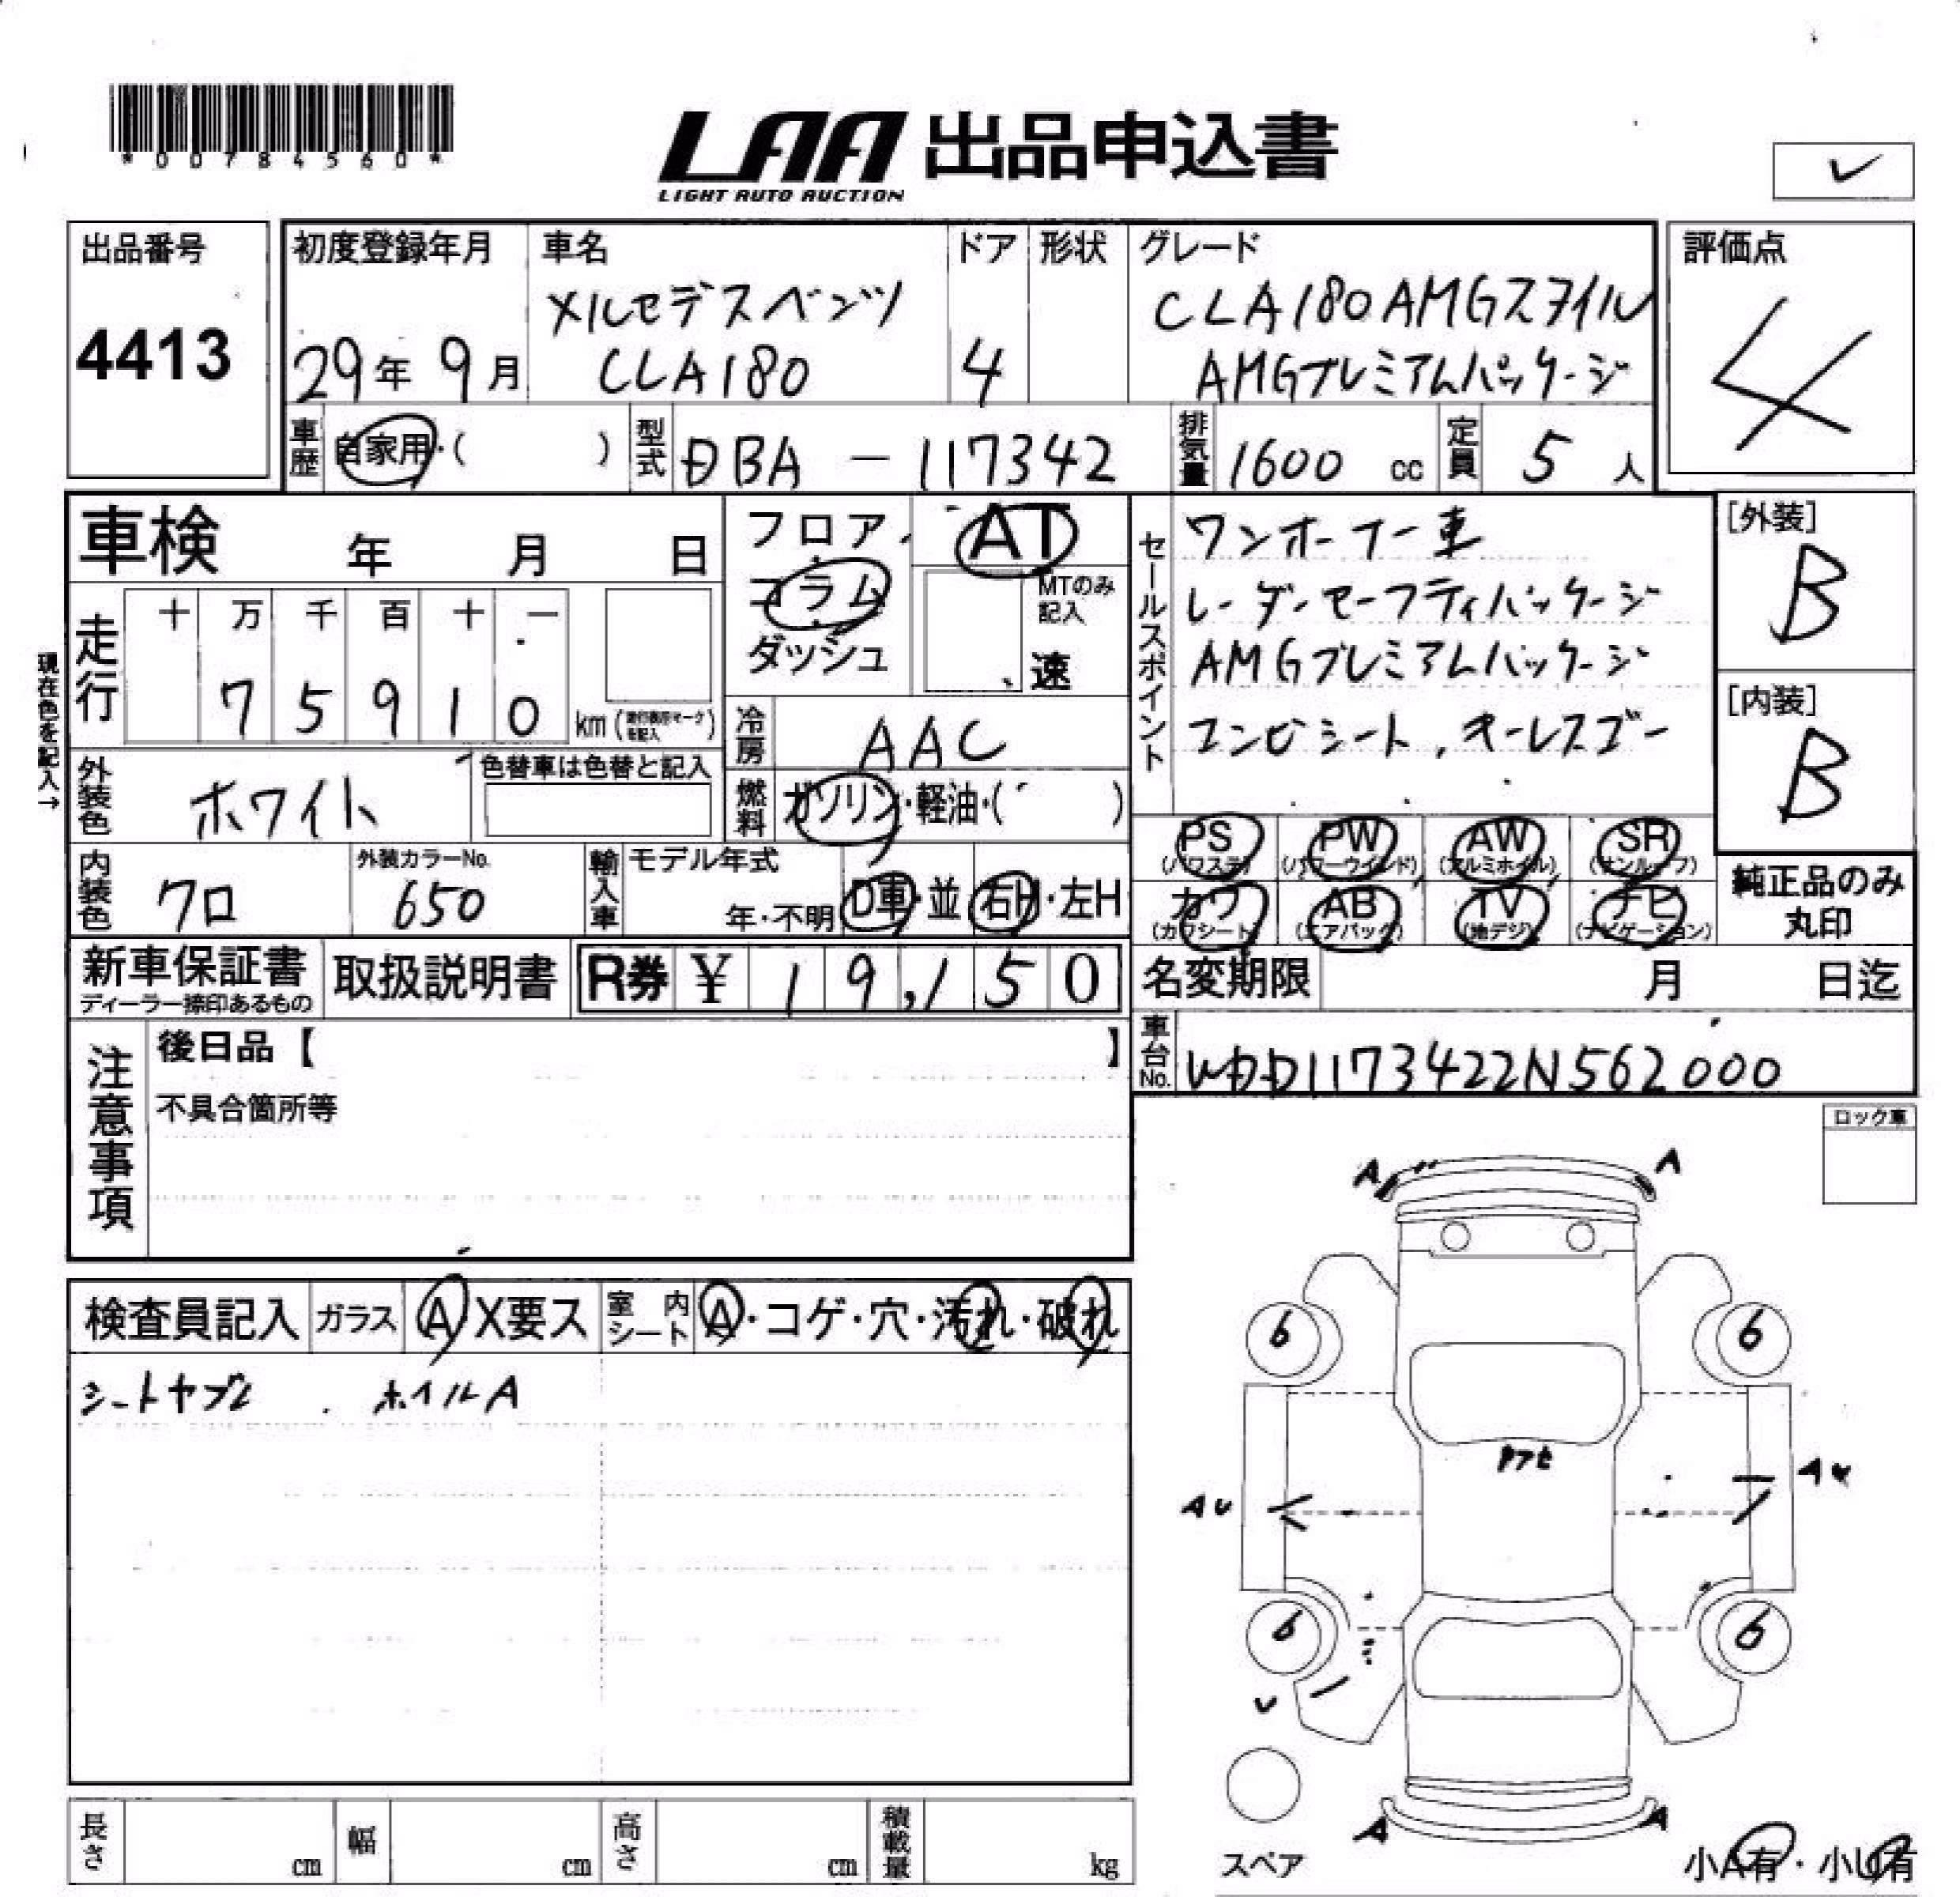 *00784560*
LAA 出品申込書
LIGHT AUTO AUCTION
出品番号
4413
初度登録年月
29年 9月
車名
メルセデスベンツ
CLA180
ドア
4
形状
グレード
CLA180AMGスタイル
AMGプレミアムパッケージ
評価点
4
車歴 自家用・( )
型式 DBA - 117342
排気量 1600 cc
定員 5 人
車検 年 月 日
フロア・
コラム・
ダッシュ
AT
MTのみ
記入
速
セールスポイント
ワンオーナー車
レーダーセーフティパッケージ
AMGプレミアムパッケージ
コンビシート、キーレスゴー
[外装]
B
[内装]
B
現在色を記入→
走行
十 万 千 百 十 一
7 5 9 1 0 km
冷房 AAC
燃料 ガソリン・軽油・( )
外装色 ホワイト
色替車は色替と記入
内装色 クロ
外装カラーNo.
650
輸入車
モデル年式
年・不明
D車・並
右H・左H
PS PW AW SR
(パワステ) (パワーウインド) (アルミホイル) (サンルーフ)
カワ AB TV ナビ
(カワシート) (エアバック) (地デジ) (ナビゲーション)
純正品のみ
丸印
新車保証書
ディーラー捺印あるもの
取扱説明書
R券 ¥ 19,150
名変期限 月 日迄
車台No. WDD1173422N562000
注意事項
後日品【 】
不具合箇所等
ロック車
検査員記入 ガラス A X要ス 室内シート A・コゲ・穴・汚れ・破れ
シートヤブレ . ホイルA
A A
6 6
AU
6 6
U
A A
スペア
小A有・小U有
長さ cm 幅 cm 高さ cm 積載量 kg